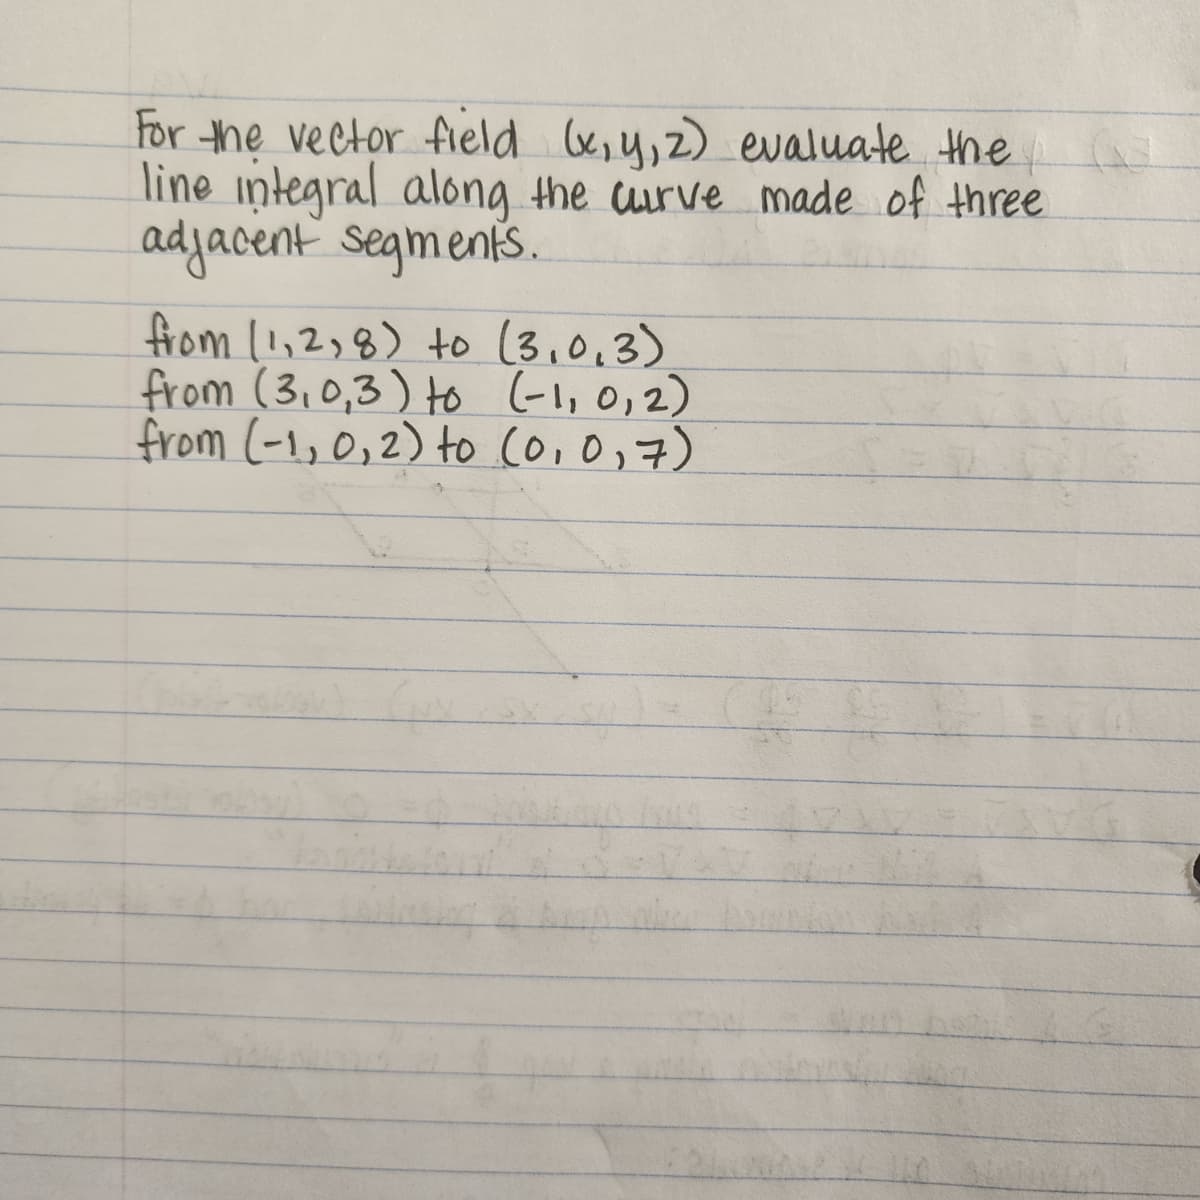 For the vector field (x,y,z) evaluate the
line integral along the curve made of three
adjacent segments.
from (1,2,8) to (3,0,3)
from (3,0,3) to (-1,0,2)
from (-1,0,2) to (0,0,7)